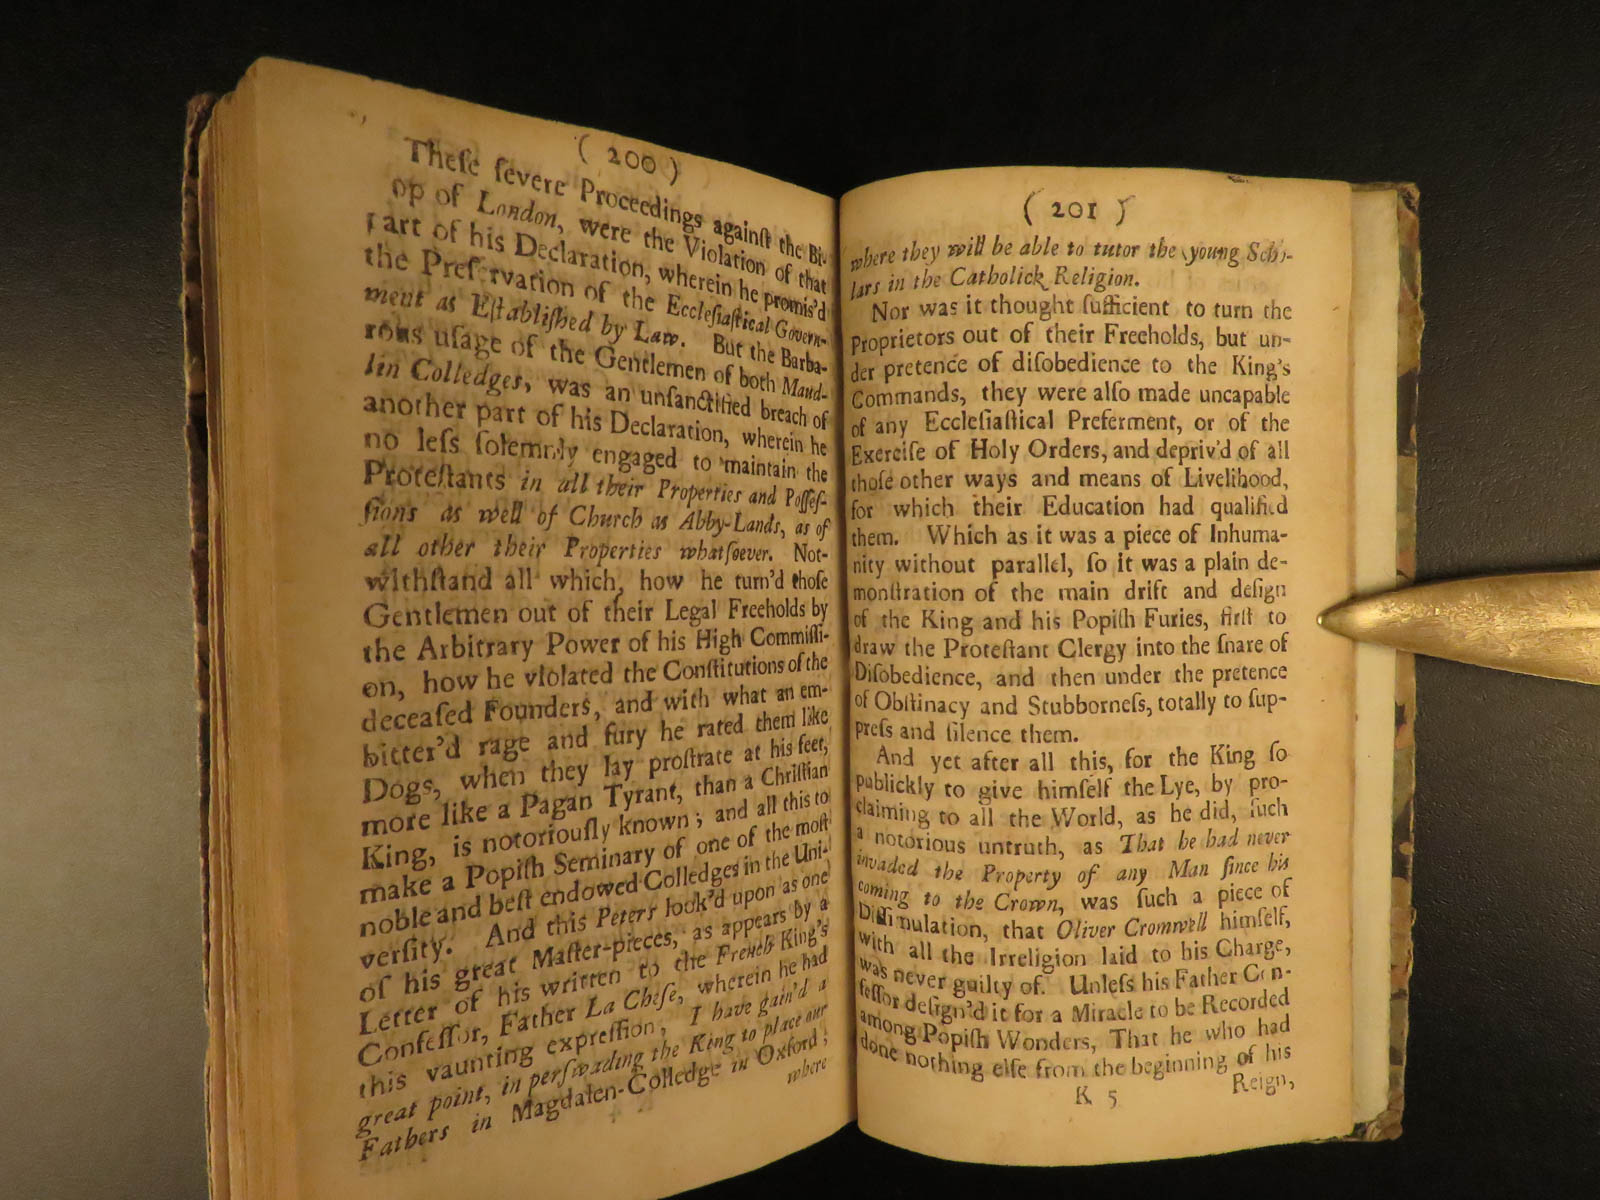 ( 200 )
Theſe ſevere Proceedings againſt the Bi-
op of London, were the Violation of that
part of his Declaration, wherein he promis'd
the Preſervation of the Eccleſiaſtical Govern-
ment as Eſtabliſhed by Law. But the Barba-
rous uſage of the Gentlemen of both Maud-
lin Colledges, was an unſanctified breach of
another part of his Declaration, wherein he
no leſs ſolemnly engaged to maintain the
Proteſtants in all their Properties and Poſſeſ-
ſions as well of Church as Abby-Lands, as of
all other their Properties whatſoever. Not-
withſtand all which, how he turn'd thoſe
Gentlemen out of their Legal Freeholds by
the Arbitrary Power of his High Commiſſi-
on, how he violated the Conſtitutions of the
deceaſed Founders, and with what an em-
bitter'd rage and fury he rated them like
Dogs, when they lay proſtrate at his feet,
more like a Pagan Tyrant, than a Chriſtian
King, is notoriouſly known; and all this to
make a Popiſh Seminary of one of the moſt
noble and beſt endowed Colledges in the Uni-
verſity. And this Peters look'd upon as one
of his great Maſter-pieces, as appears by a
Letter of his written to the French King's
Confeſſor, Father La Cheſe, wherein he had
this vaunting expreſſion, I have gain'd a
great point, in perſwading the King to place our
Fathers in Magdalen-Colledge in Oxford;
where
( 201 )
where they will be able to tutor the young Scho-
lars in the Catholick Religion.
Nor was it thought ſufficient to turn the
Proprietors out of their Freeholds, but un-
der pretence of diſobedience to the King's
Commands, they were alſo made uncapable
of any Eccleſiaſtical Preferment, or of the
Exerciſe of Holy Orders, and depriv'd of all
thoſe other ways and means of Livelihood,
for which their Education had qualified
them. Which as it was a piece of Inhuma-
nity without parallel, ſo it was a plain de-
monſtration of the main drift and deſign
of the King and his Popiſh Furies, firſt to
draw the Proteſtant Clergy into the ſnare of
Diſobedience, and then under the pretence
of Obſtinacy and Stubborneſs, totally to ſup-
preſs and ſilence them.
And yet after all this, for the King ſo
publickly to give himſelf the Lye, by pro-
claiming to all the World, as he did, ſuch
a notorious untruth, as That he had never
invaded the Property of any Man ſince his
coming to the Crown, was ſuch a piece of
Diſſimulation, that Oliver Cromwell himſelf,
with all the Irreligion laid to his Charge,
was never guilty of. Unleſs his Father Con-
feſſor deſign'd it for a Miracle to be Recorded
among Popiſh Wonders, That he who had
done nothing elſe from the beginning of his
K 5 Reign,